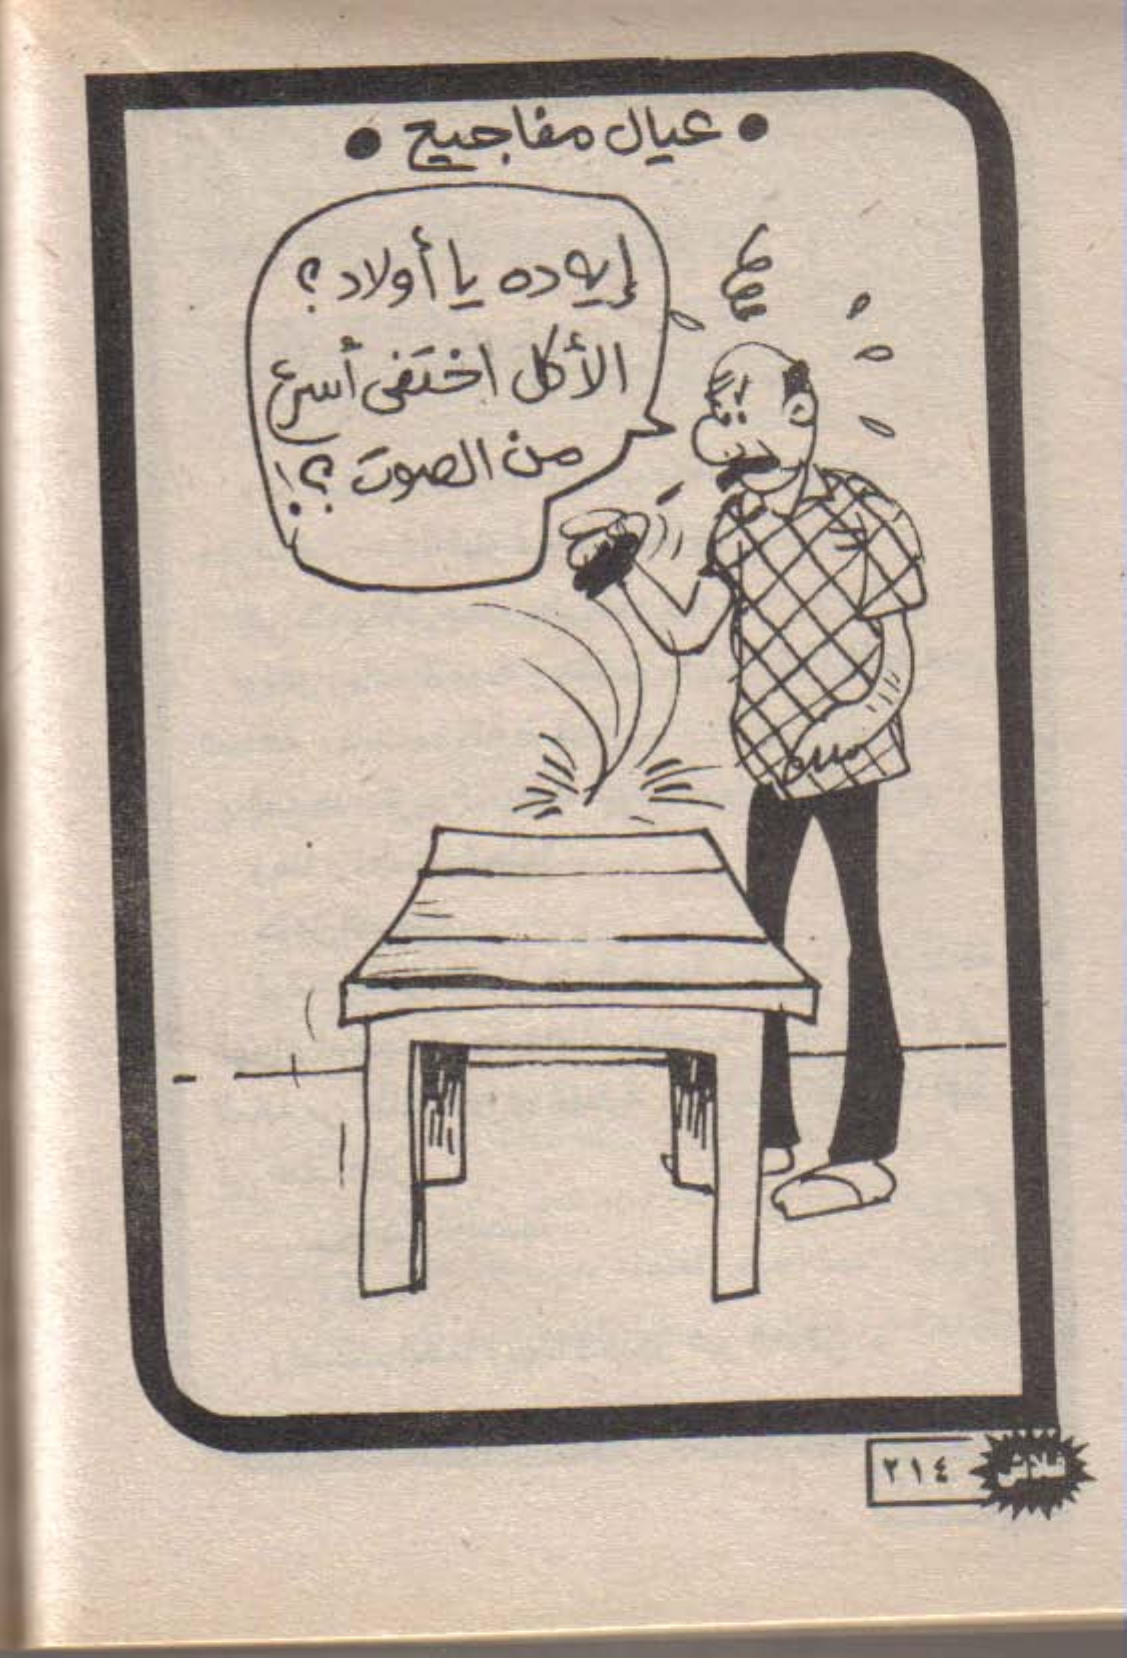 • عيال مفاجيع •
إيه ده يا أولاد؟
الأكل اختفى أسرع
من الصوت؟!
٢١٤
فلاش